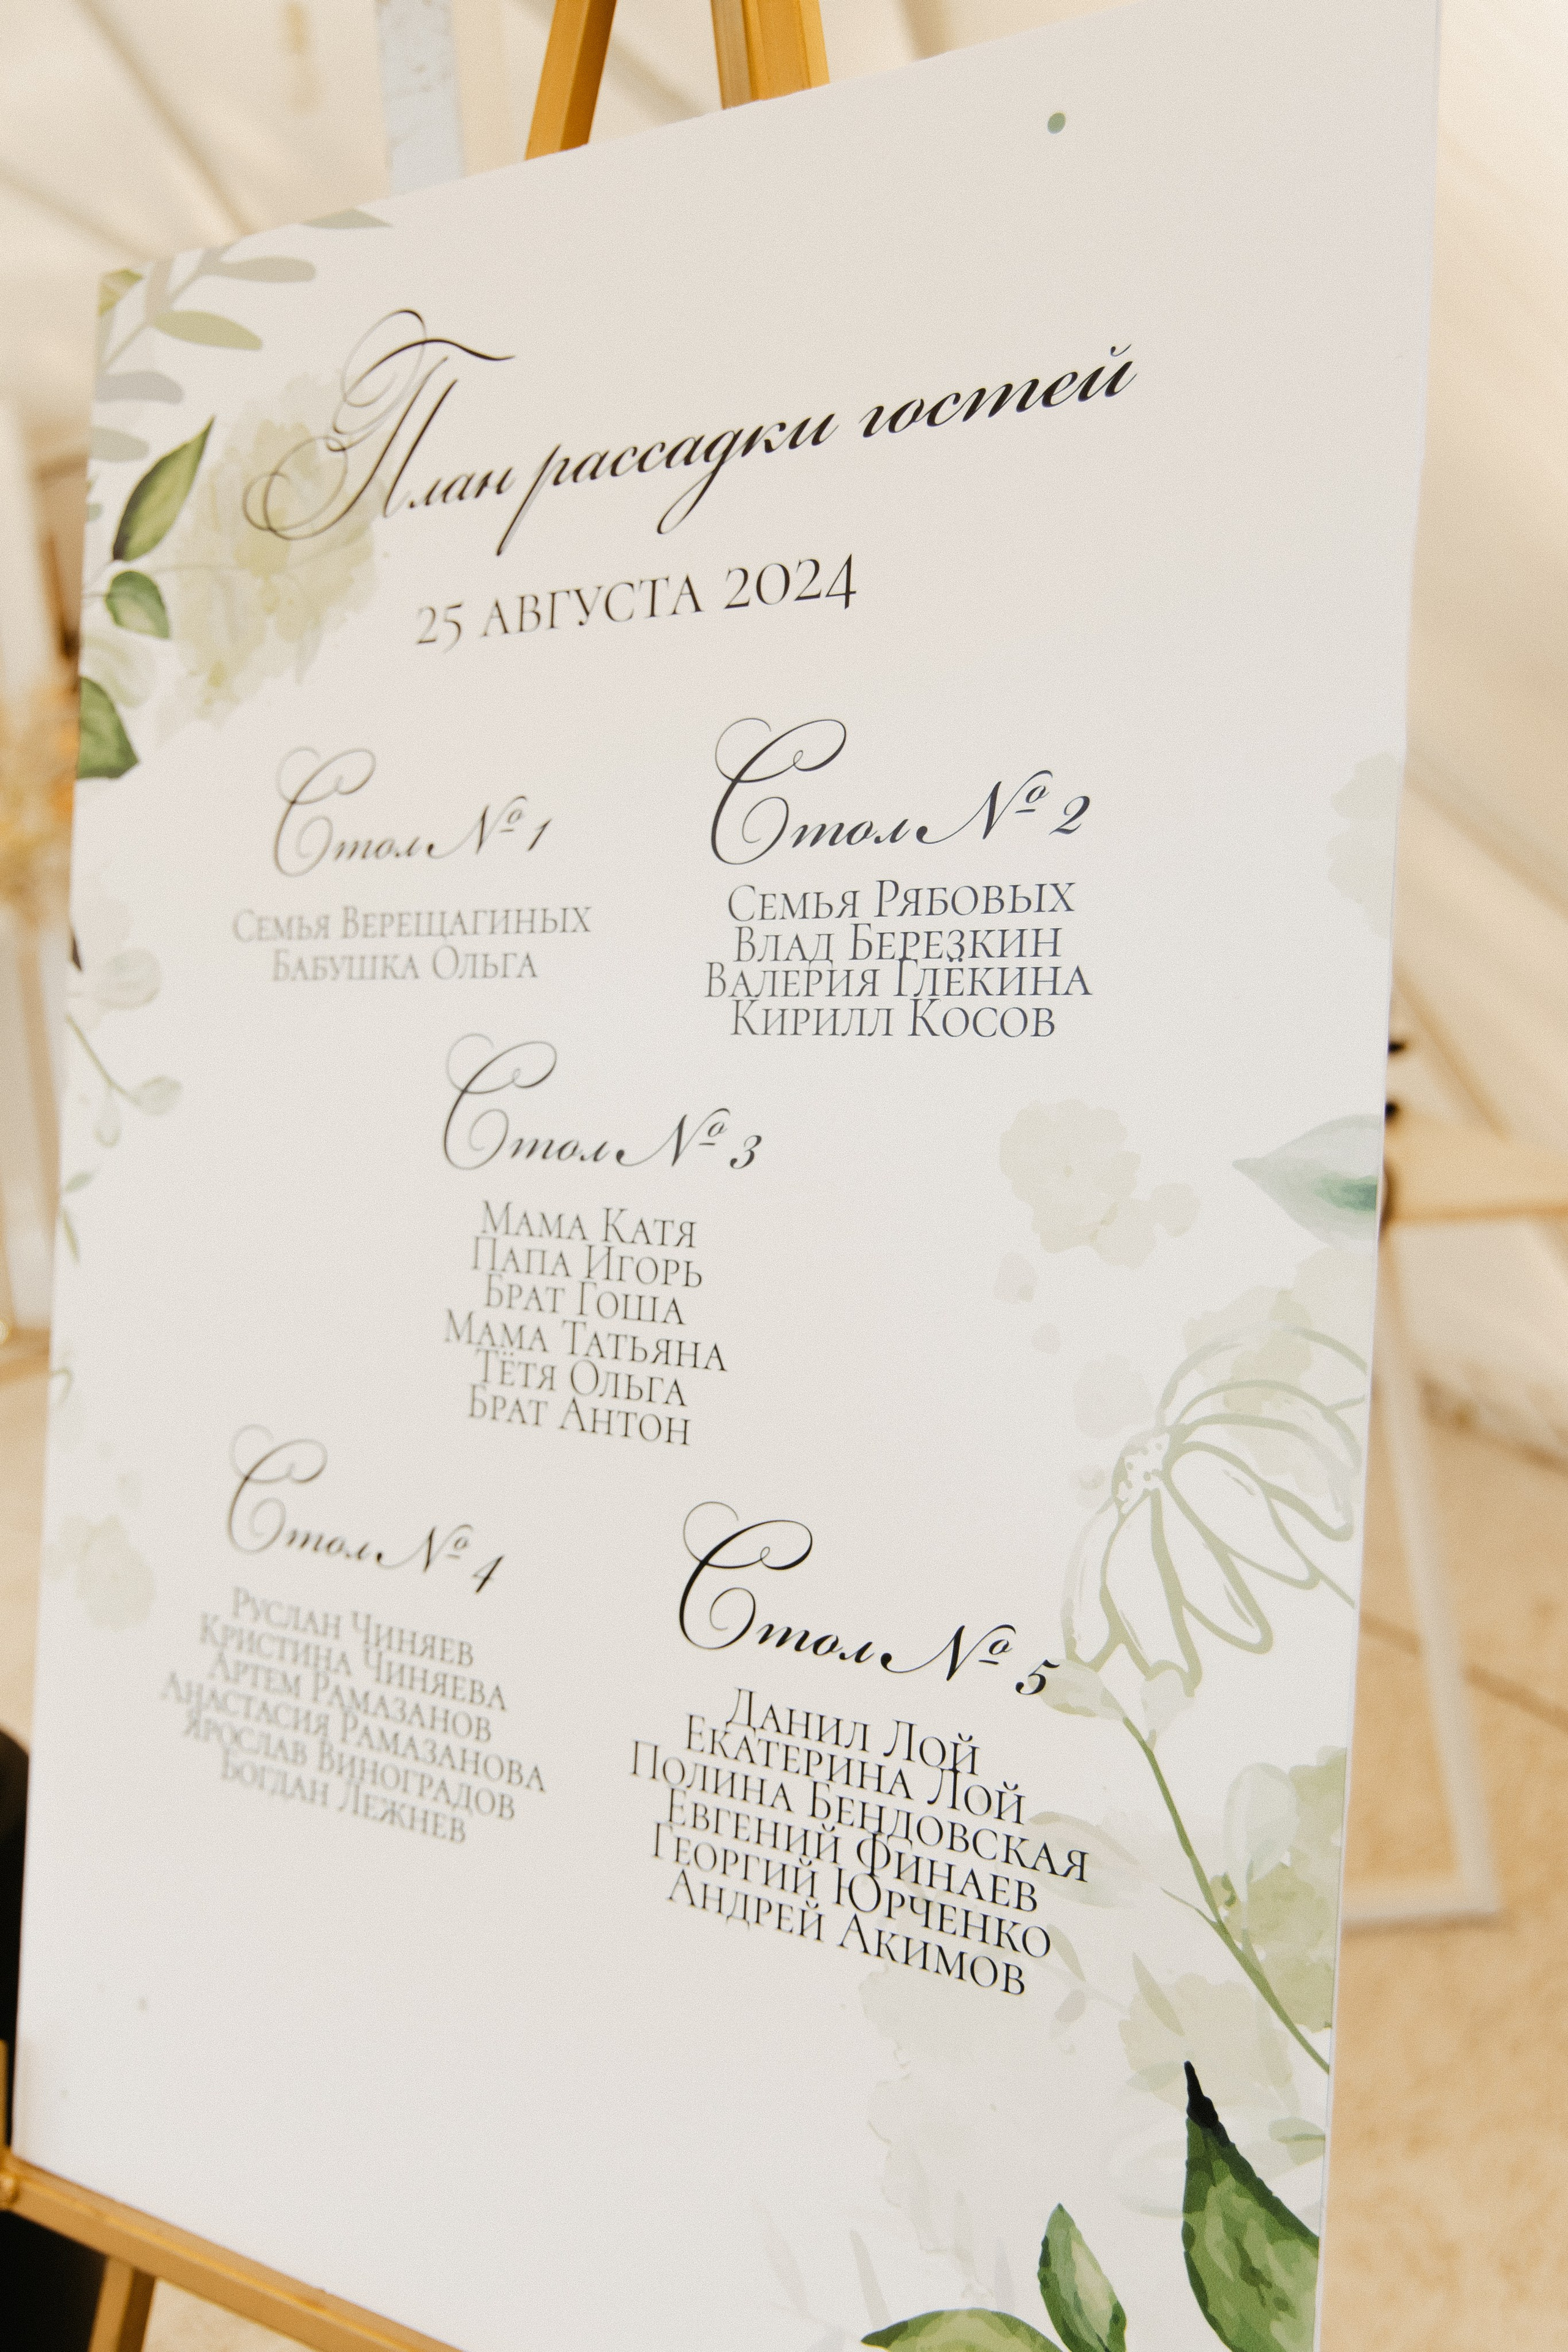 План рассадки гостей
25 АВГУСТА 2024
Стол № 1
Семья Верещагиных
Бабушка Ольга
Стол № 2
Семья Рябовых
Влад Березкин
Валерия Глёкина
Кирилл Косов
Стол № 3
Мама Катя
Папа Игорь
Брат Гоша
Мама Татьяна
Тётя Ольга
Брат Антон
Стол № 4
Руслан Чиняев
Кристина Чиняева
Артем Рамазанов
Анастасия Рамазанова
Ярослав Виноградов
Богдан Лежнев
Стол № 5
Данил Лой
Екатерина Лой
Полина Бендовская
Евгений Финаев
Георгий Юрченко
Андрей Акимов